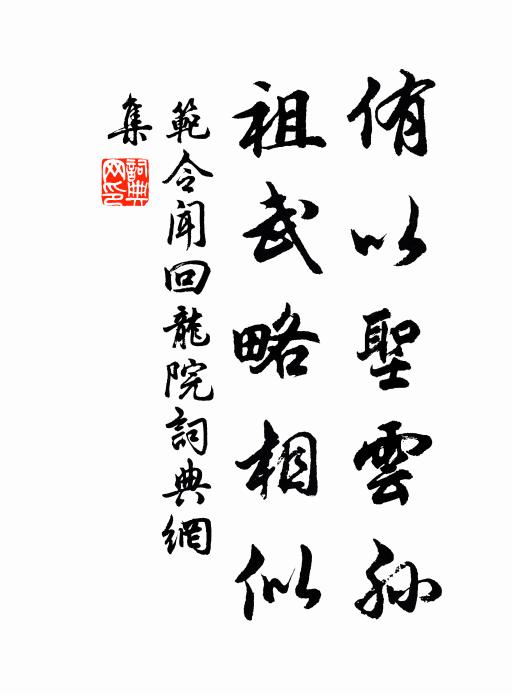 侑以聖雲孫
祖武略相似
範令聞回龍院詞典網
集
詞典網印